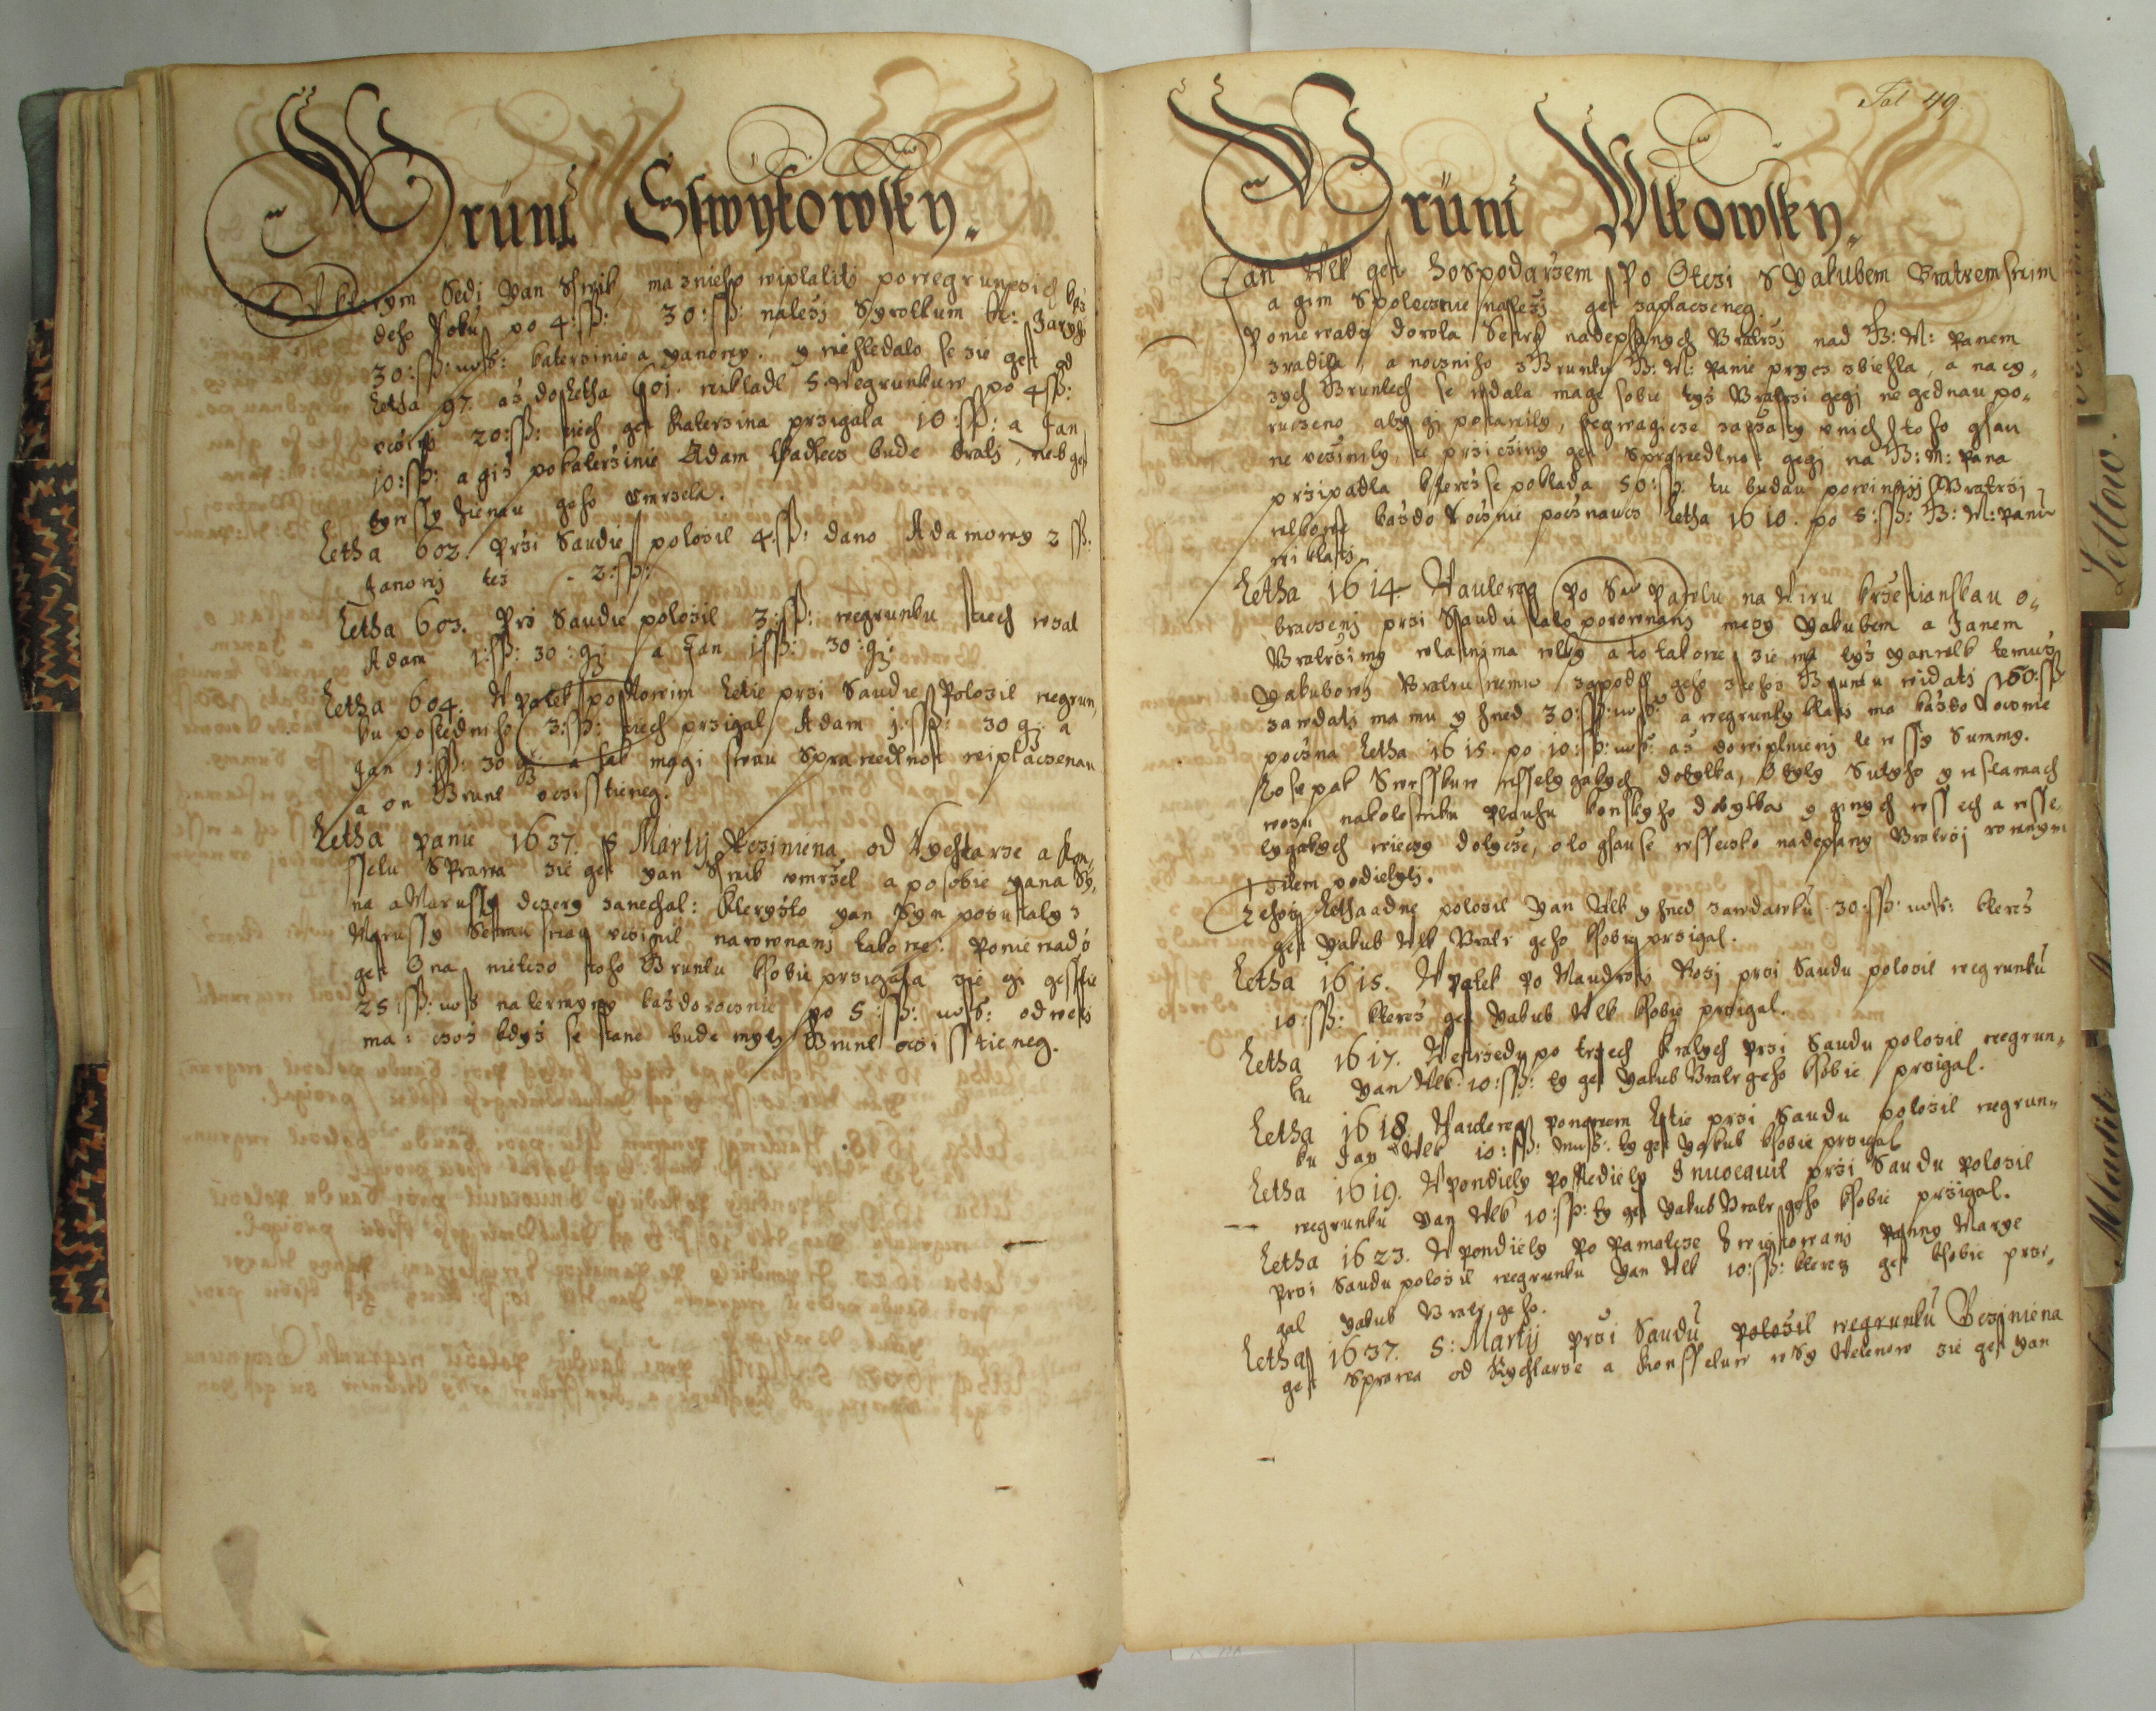 Grunt Sswykowsky.
Na kterym Sedi Yan Swik, ma znieho wiplatiti powegrunczich kaz
deho Roku po 4: ſß: 30: ſß: nalezi Syrotkum
30: ſß: mß: katerzinie a Yanowy. y wihledalo se zie gest od
Letha 97. az do Letha 601. wikladl 5. Wegrunkuw po 4 ſß:
20: ſß: tiech gest Katerzina przigala 10: ſß: a Jan
10: ſß: a giz po katerzinie Adam bude brati, neb gest
tyz zienau geho Umrzela.
Letha 602. Przi Saudie polozil 4. ſß: dano Adamowy 2 ſß:
Janowi tez 2: ſß:
Letha 603. Przi Saudie polozil 3: ſß: wegrunku tiech wzal
Adam 1: ſß: 30: g: a Jan 1 ſß: 30: g:
Letha 604. W patek po Nowim Letie przi Saudie Polozil wegrun,
ku posledniho 3: ſß: tiech przigal Adam 1: ſß: 30 g: a
Jan 1: ſß: 30 g: a tak magi swau Sprawedlnost wiplaczenau
a on Grunt oczisstieneg.
Letha Panie 1637. 5 Martij Ucziniena od Rychtarze a Kon,
sselu Sprawa zie gest Yan Swik umrzel a po sobie Yana Sy,
na a Marussy dczery zanechal: kteryzto Yan Syn pozustaly z
Marussy Sestrau swau uczinil narownani takowe: Poniewadz
gest Ona nietczo toho Gruntu ksobie przigala zie gi gesstie
25: ſß: mß na terminy kazdorocznie po 5: ſß: mß: odwesti
ma: czoz kdyz se stane bude myti Grunt oczisstieneg.
Fol 49.
Grunt Wlkowsky.
Jan Wlk gest Hospodarzem Po Otczi S Yakubem Bratrem swim
a gim Spoleczne nalezi gest zaplaczeneg.
Poniewadz Dorota Sestra nadepsanych Bratrzi nad G: M: Panem
zradila, a noczniho z Gruntu G: M: Panie prycz zbiehla, a na cy,
zych Gruntech se wdala mage sobie tyz Bratrzi gegi ne gednau po,
ruczeno aby gi postawily, negwagicze sazaty unich toho gsau
ne ucziinily, te prziczziny gest Sprawedlnost gegi na G: M: Pana
przipadla kterez se poklada 50: ſß. tu budau powinni Bratrzi
wlkowe kazdo Rocznie pocznaucz Letha 1610. po 5: ſß: G: M: Panu
wiklasti.
Letha 1614 Wauterey Po Sw Pawlu na Wiru krzestianskau o,
braczeni przi Saudu stalo porownani mezy Yakubem a Janem
Bratrzimy wlastnima wlky a to takowe, zie ma tyz Yan wlk temuz
Yakubowi Bratru swemu zapodil geho ztohoz Gruntu widati 160: ſß
zawdati ma mu y hned 30: ſß: mß: a wegrunky klasti ma kazdo Rocznie
poczna Letha 1615. po 10: ſß: mß: az do wiplnieni te wssy Summy.
Czo se pak Swrsskuw wsselygakych dobytka, Obyly Sutyho y wslamach
wozu nakolesniku pluhu konskyho dobytka y ginych wssech a wsse
lygakych wieczy dotycze, oto gsau se wssecko nadepsany Bratrzi rownym
dilem podielyly.
Tehoz Letha adne polozil Yan Wlk y hned zawdawku 30: ſß: mß: kterez
gest Yakub Wlk Bratr geho ksobie przigal.
Letha 1615. W patek po Naudrzij Kozj przi Saudu polozil wegrunku
10: ſß: kterez gest Yakub Wlk ksobie przigal.
Letha 1617. Westrzedu po trzech Kralych przi Saudu polozil wegrun,
ku Yan Wlk 10: ſß: ty gest Yakub Bratr geho ksobie przigal.
Letha 1618. Wauterey ponowem Letie przi Saudu polozil wegrun,
ku Jan Wlk 10: ſß: mß: ty gest Yakub ksobie przigal
Letha 1619. W pondiely po Nediely Inuocauit przi Saudu polozil
wegrunku Yan Wlk 10: ſß: ty gest Yakub Bratr geho ksobie przigal.
Letha 1623. W pondiely Po Pamatcze Panny Marye
Przi Saudu polozil wegrunku Yan Wlk 10: ſß: kterez gest ksobie przi,
gal Yakub Bratr geho.
Letha 1637. 5: Martij przi Saudu polozil wegrunku Ucziniena
gest Sprawa od Rychtarze a Konsseluw wsy Welenow zie gest Yan
Lettow.
Mladili